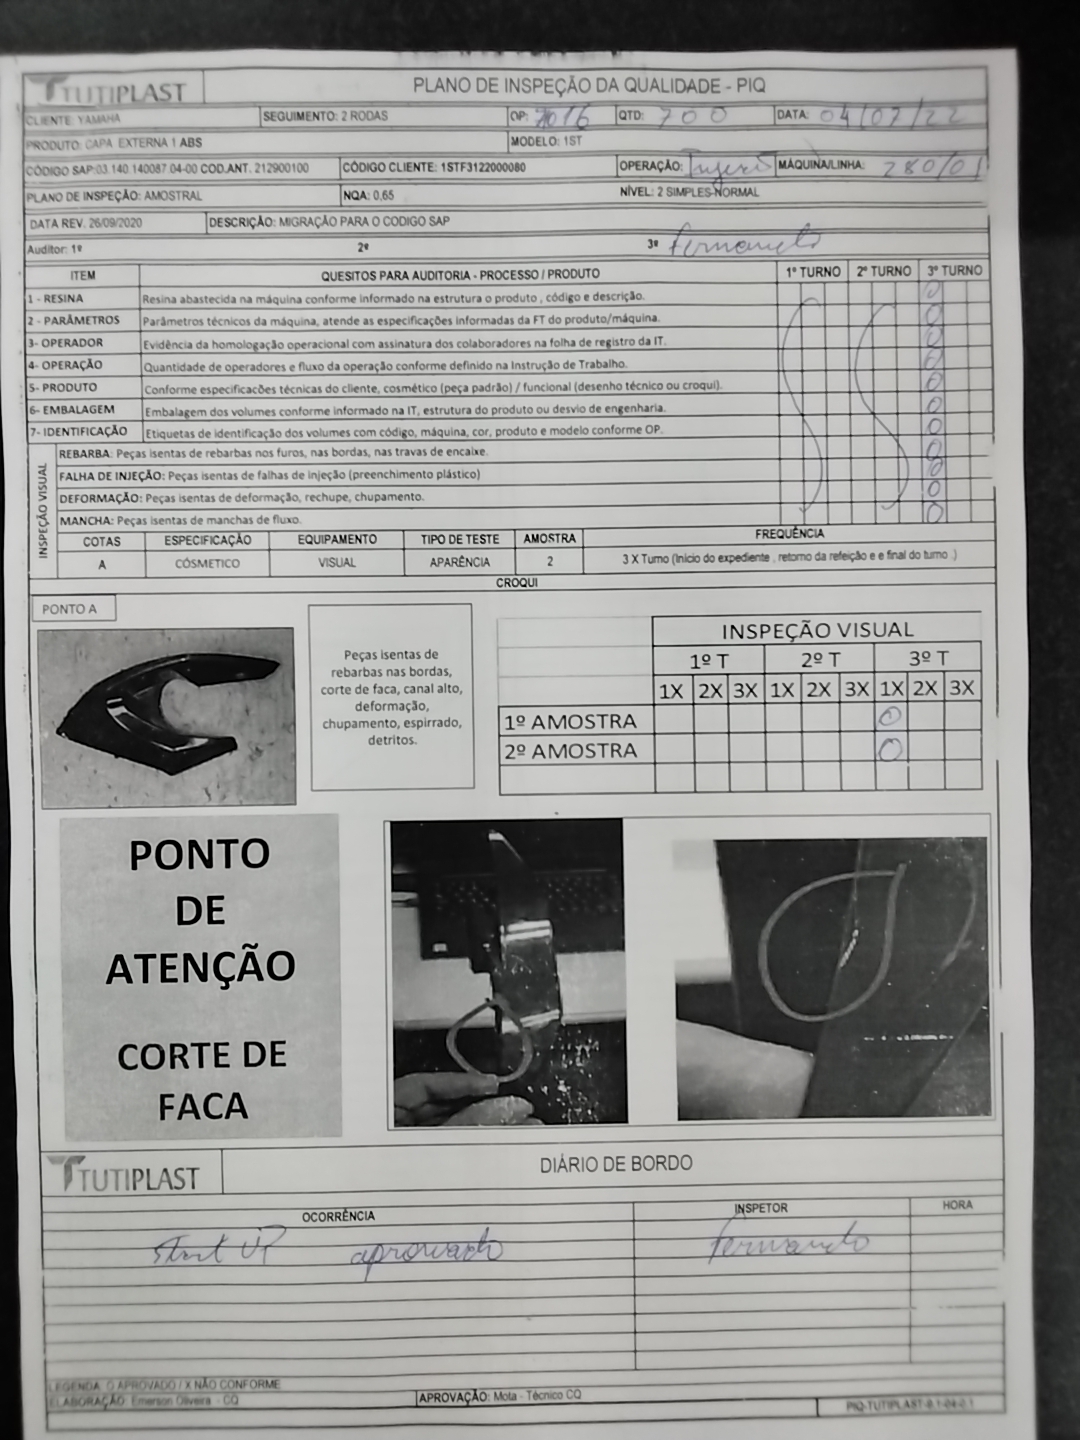 TUTIPLAST
PLANO DE INSPEÇÃO DA QUALIDADE - PIQ
CLIENTE: YAMAHA SEGUIMENTO: 2 RODAS OP: 7016 QTD: 700 DATA: 04/07/22
PRODUTO: CAPA EXTERNA 1 ABS MODELO: 1ST
CÓDIGO SAP:03.140.140087.04-00 COD.ANT. 212900100 CÓDIGO CLIENTE: 1STF3122000080 OPERAÇÃO: MÁQUINA/LINHA: 280/01
PLANO DE INSPEÇÃO: AMOSTRAL NQA: 0,65 NÍVEL: 2 SIMPLES-NORMAL
DATA REV. 26/09/2020 DESCRIÇÃO: MIGRAÇÃO PARA O CODIGO SAP
Auditor: 1º 2º 3º Fernando
ITEM QUESITOS PARA AUDITORIA - PROCESSO / PRODUTO 1º TURNO 2º TURNO 3º TURNO
1 - RESINA Resina abastecida na máquina conforme informado na estrutura o produto , código e descrição. O
2 - PARÂMETROS Parâmetros técnicos da máquina, atende as especificações informadas da FT do produto/máquina. O
3- OPERADOR Evidência da homologação operacional com assinatura dos colaboradores na folha de registro da IT. O
4- OPERAÇÃO Quantidade de operadores e fluxo da operação conforme definido na Instrução de Trabalho. O
5- PRODUTO Conforme especificacões técnicas do cliente, cosmético (peça padrão) / funcional (desenho técnico ou croqui). O
6- EMBALAGEM Embalagem dos volumes conforme informado na IT, estrutura do produto ou desvio de engenharia. O
7- IDENTIFICAÇÃO Etiquetas de identificação dos volumes com código, máquina, cor, produto e modelo conforme OP. O
INSPEÇÃO VISUAL
REBARBA: Peças isentas de rebarbas nos furos, nas bordas, nas travas de encaixe. O
FALHA DE INJEÇÃO: Peças isentas de falhas de injeção (preenchimento plástico) O
DEFORMAÇÃO: Peças isentas de deformação, rechupe, chupamento. O
MANCHA: Peças isentas de manchas de fluxo. O
COTAS ESPECIFICAÇÃO EQUIPAMENTO TIPO DE TESTE AMOSTRA FREQUÊNCIA
A CÓSMETICO VISUAL APARÊNCIA 2 3 X Turno (Inicio do expediente , retorno da refeição e e final do turno .)
CROQUI
PONTO A
Peças isentas de
rebarbas nas bordas,
corte de faca, canal alto,
deformação,
chupamento, espirrado,
detritos.
INSPEÇÃO VISUAL
1º T 2º T 3º T
1X 2X 3X 1X 2X 3X 1X 2X 3X
1º AMOSTRA O
2º AMOSTRA O
PONTO
DE
ATENÇÃO
CORTE DE
FACA
TUTIPLAST
DIÁRIO DE BORDO
OCORRÊNCIA INSPETOR HORA
Start UP aprovado Fernando
LEGENDA: O APROVADO / X NÃO CONFORME
ELABORAÇÃO: Emerson Oliveira - CQ APROVAÇÃO: Mota - Técnico CQ